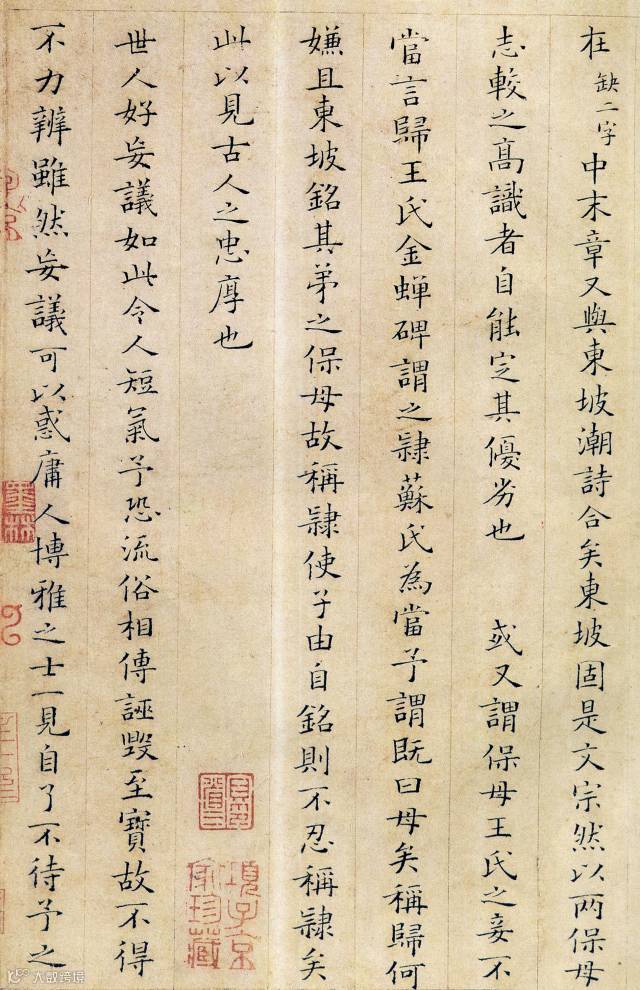 在缺二字中末章又與東坡潮詩合矣東坡固是文宗然以两保母
志較之高識者自能定其優劣也 或又謂保母王氏之妾不
當言歸王氏金蟬碑謂之隸蘇氏為當予謂既曰母矣稱歸何
嫌且東坡銘其弟之保母故稱隸使子由自銘則不忍稱隸矣
此以見古人之忠厚也
世人好妄議如此令人短氣予恐流俗相傳誣毀至寶故不得
不力辨雖然妄議可以惑庸人博雅之士一見自了不待予之
項子京
家珍藏
大数跨境